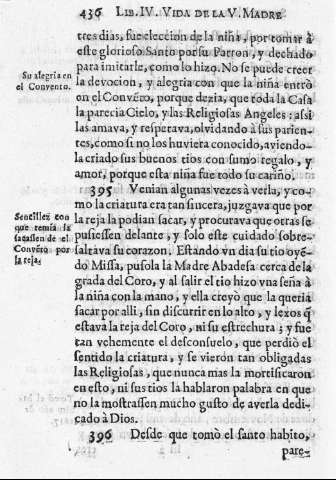 436 LIB. IV. VIDA DE LA V. MADRE
tres dias, fue eleccion de la niña, por tomar à
este glorioso Santo por su Patron, y dechado
para imitarle, como lo hizo. No se puede creer
Su alegria en
el Convento.
la devocion, y alegria con que la niña entrò
en el Convẽto, porque dezia, que toda la Casa
la parecia Cielo, y las Religiosas Angeles: assi
las amava, y respetava, olvidando à sus parien-
tes, como si no los huviera conocido, aviendo-
la criado sus buenos tios con sumo regalo, y
amor, porque esta niña fue todo su cariño.
395 Venian algunas vezes à verla, y co-
mo la criatura era tan sincera, juzgava que por
Sencillez con
que temia la
sacassen de el
Convẽto por
la reja.
la reja la podian sacar, y procurava que otras se
pusiessen delante, y solo este cuidado sobre-
saltava su corazon. Estando vn dia su tio oyẽ-
do Missa, pusola la Madre Abadesa cerca de la
grada del Coro, y al salir el tio hizo vna seña à
la niña con la mano, y ella creyò que la queria
sacar por alli, sin discurrir en lo alto, y lexos q̃
estava la reja del Coro, ni su estrechura; y fue
tan vehemente el desconsuelo, que perdiò el
sentido la criatura, y se vieron tan obligadas
las Religiosas, que nunca mas la mortificaron
en esto, ni sus tios la hablaron palabra en que
no la mostrassen mucho gusto de averla dedi-
cado à Dios.
396 Desde que tomò el santo habito,
pare-